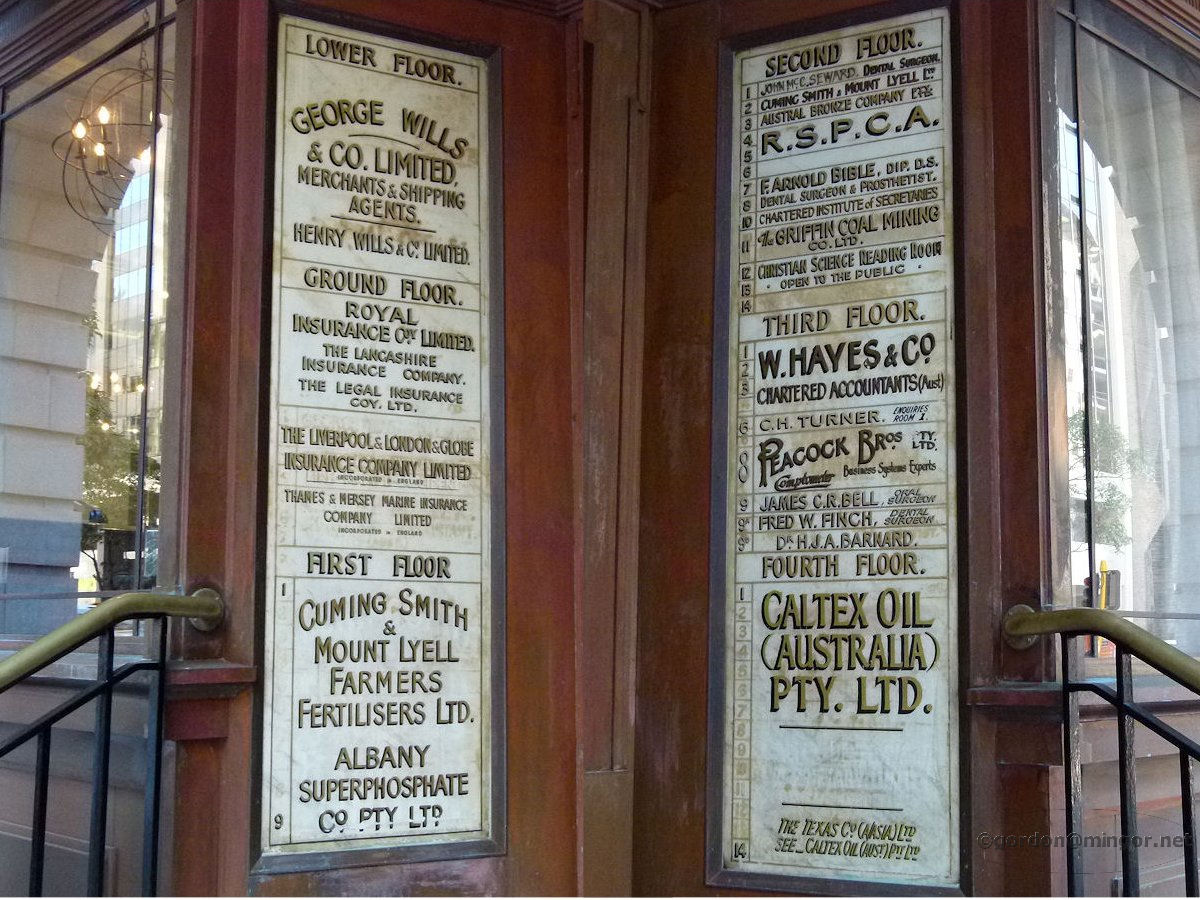 LOWER FLOOR.
GEORGE WILLS
& CO. LIMITED,
MERCHANTS & SHIPPING
AGENTS.
HENRY WILLS & Cº. LIMITED.
GROUND FLOOR.
ROYAL
INSURANCE COY LIMITED.
THE LANCASHIRE
INSURANCE COMPANY.
THE LEGAL INSURANCE
COY. LTD.
THE LIVERPOOL & LONDON & GLOBE
INSURANCE COMPANY LIMITED
INCORPORATED IN ENGLAND
THAMES & MERSEY MARINE INSURANCE
COMPANY LIMITED
INCORPORATED IN ENGLAND
FIRST FLOOR
1
CUMING SMITH
&
MOUNT LYELL
FARMERS
FERTILISERS LTD.
ALBANY
SUPERPHOSPHATE
9 Cº PTY LTD
SECOND FLOOR.
1 JOHN McC. SEWARD. DENTAL SURGEON.
2 CUMING SMITH & MOUNT LYELL LTD
3 AUSTRAL BRONZE COMPANY
4 R.S.P.C.A.
5
6
7 F. ARNOLD BIBLE, DIP. D.S.
8 DENTAL SURGEON & PROSTHETIST.
10 CHARTERED INSTITUTE OF SECRETARIES
11 The GRIFFIN COAL MINING
CO. LTD.
12 CHRISTIAN SCIENCE READING ROOM
13 OPEN TO THE PUBLIC
14
THIRD FLOOR.
1 W. HAYES & Cº
2
3 CHARTERED ACCOUNTANTS (Aust)
6 C.H. TURNER. ENQUIRIES ROOM 1.
8 PEACOCK BROS PTY. LTD.
Comptometer Business Systems Experts
9 JAMES C.R. BELL, ORAL SURGEON
9A FRED W. FINCH, DENTAL SURGEON
9B DR. H.J.A. BARNARD.
FOURTH FLOOR.
1 CALTEX OIL
2
3 (AUSTRALIA)
4
5 PTY. LTD.
6
7
8
9
10
11
THE TEXAS Cº (A/ASIA) LTD
14 SEE_ CALTEX OIL (AUST) PTY LTD
©gordon@mingor.net